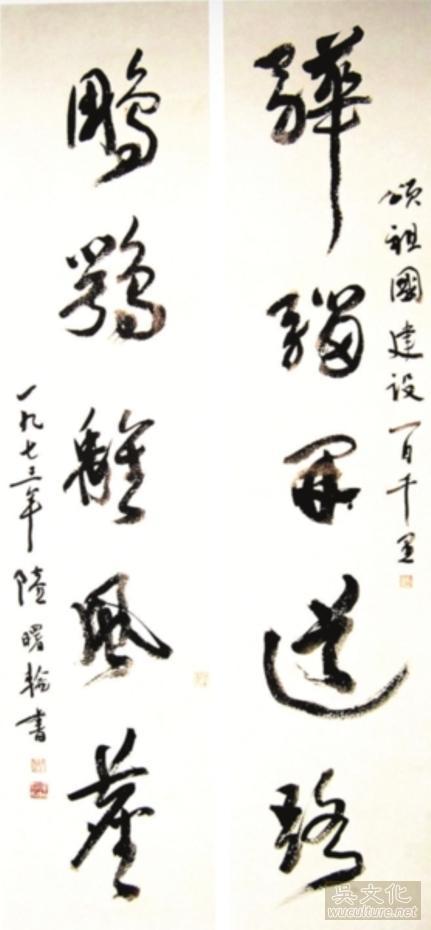 頌祖國建設一日千里
驊騮開道路
鵰鶚離風塵
一九七三年 陸曙輪書
吳文化
wuculture.net